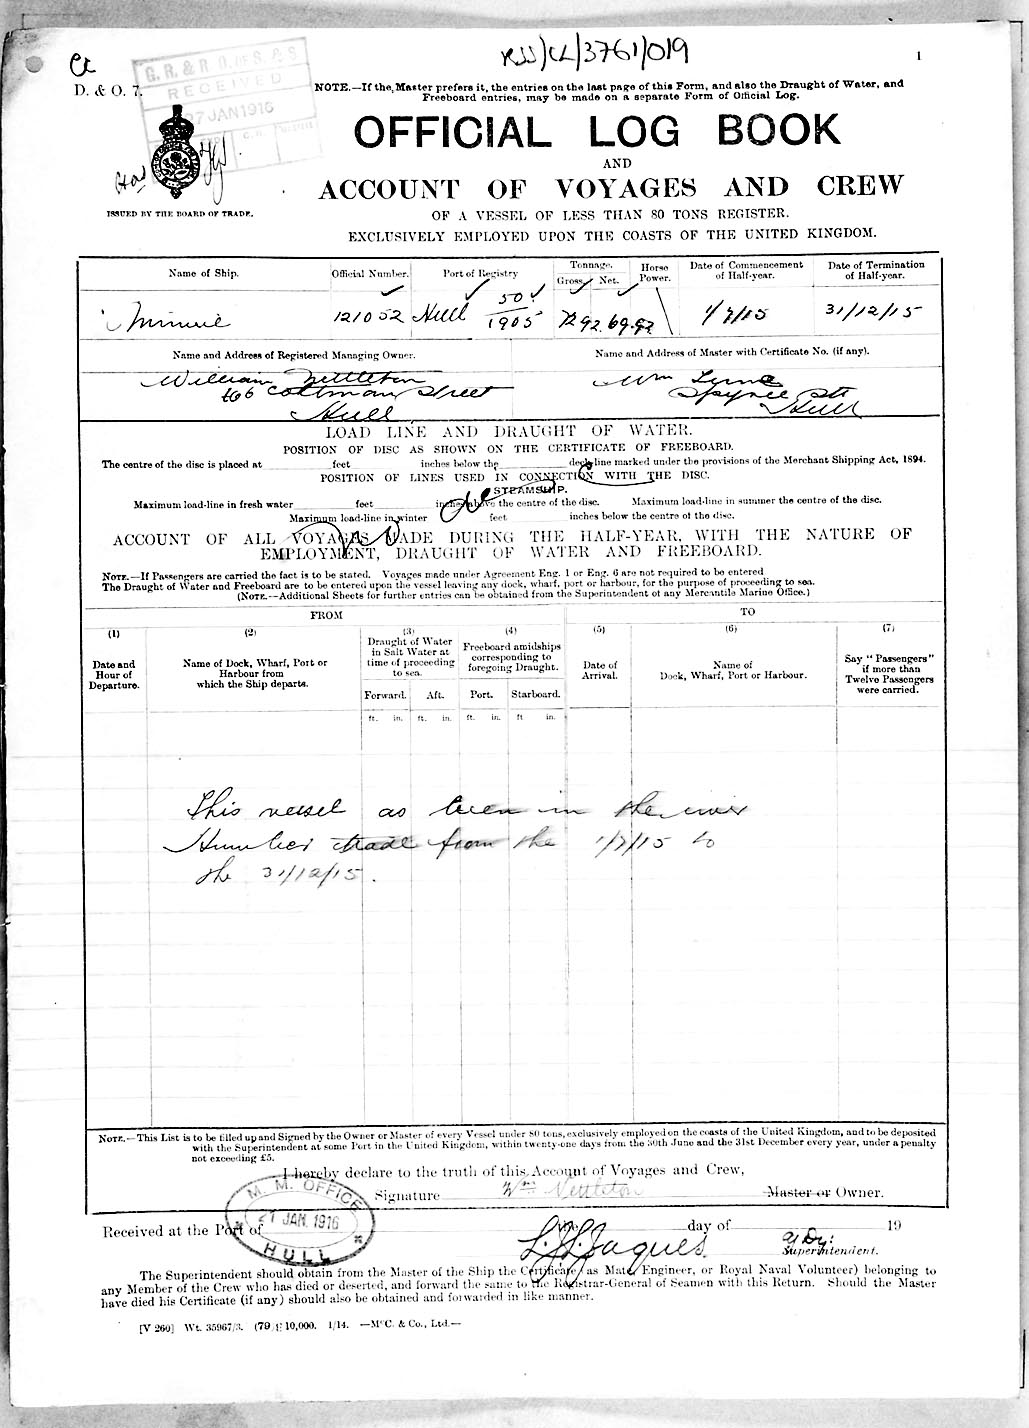 RSS/CL/3761/019
1
D. & O. 7.
G. R. & R. O. OF S. & S.
RECEIVED
27 JAN 1916
NOTE.—If the Master prefers it, the entries on the last page of this Form, and also the Draught of Water, and
Freeboard entries, may be made on a separate Form of Official Log.
OFFICIAL LOG BOOK
AND
ACCOUNT OF VOYAGES AND CREW
ISSUED BY THE BOARD OF TRADE.
OF A VESSEL OF LESS THAN 80 TONS REGISTER.
EXCLUSIVELY EMPLOYED UPON THE COASTS OF THE UNITED KINGDOM.
Name of Ship. Official Number. Port of Registry Tonnage. Gross. Net. Horse Power. Date of Commencement of Half-year. Date of Termination of Half-year.
Minnie 121052 Hull 50/1905 72.92 69.92 1/7/15 31/12/15
Name and Address of Registered Managing Owner. Name and Address of Master with Certificate No. (if any).
William Nettleton Wm
Coltman Street Spyvee St
Hull Hull
LOAD LINE AND DRAUGHT OF WATER.
POSITION OF DISC AS SHOWN ON THE CERTIFICATE OF FREEBOARD.
The centre of the disc is placed at feet inches below the deck line marked under the provisions of the Merchant Shipping Act, 1894.
POSITION OF LINES USED IN CONNECTION WITH THE DISC.
STEAMSHIP.
Maximum load-line in fresh water feet inches above the centre of the disc. Maximum load-line in summer the centre of the disc.
Maximum load-line in winter feet inches below the centre of the disc.
ACCOUNT OF ALL VOYAGES MADE DURING THE HALF-YEAR, WITH THE NATURE OF
EMPLOYMENT, DRAUGHT OF WATER AND FREEBOARD.
NOTE.—If Passengers are carried the fact is to be stated. Voyages made under Agreement Eng. 1 or Eng. 6 are not required to be entered
The Draught of Water and Freeboard are to be entered upon the vessel leaving any dock, wharf, port or harbour, for the purpose of proceeding to sea.
(NOTE.—Additional Sheets for further entries can be obtained from the Superintendent of any Mercantile Marine Office.)
FROM TO
(1) (2) (3) (4) (5) (6) (7)
Date and Hour of Departure.
Name of Dock, Wharf, Port or Harbour from which the Ship departs.
Draught of Water in Salt Water at time of proceeding to sea.
Freeboard amidships corresponding to foregoing Draught.
Date of Arrival.
Name of Dock, Wharf, Port or Harbour.
Say "Passengers" if more than Twelve Passengers were carried.
Forward. Aft. Port. Starboard.
ft. in. ft. in. ft. in. ft in.
This vessel as been in the river
Humber trade from the 1/7/15 to
the 31/12/15.
NOTE.—This List is to be filled up and Signed by the Owner or Master of every Vessel under 80 tons, exclusively employed on the coasts of the United Kingdom, and to be deposited
with the Superintendent at some Port in the United Kingdom, within twenty-one days from the 30th June and the 31st December every year, under a penalty
not exceeding £5.
I hereby declare to the truth of this Account of Voyages and Crew,
Signature Wm Nettleton Master or Owner.
M. M. OFFICE
21 JAN. 1916
HULL
Received at the Port of day of 19
Jaques Dy: Superintendent.
The Superintendent should obtain from the Master of the Ship the Certificate (as Mate, Engineer, or Royal Naval Volunteer) belonging to
any Member of the Crew who has died or deserted, and forward the same to the Registrar-General of Seamen with this Return. Should the Master
have died his Certificate (if any) should also be obtained and forwarded in like manner.
[V 260] Wt. 35967/3. 10,000. 1/14. —McC. & Co., Ltd.—